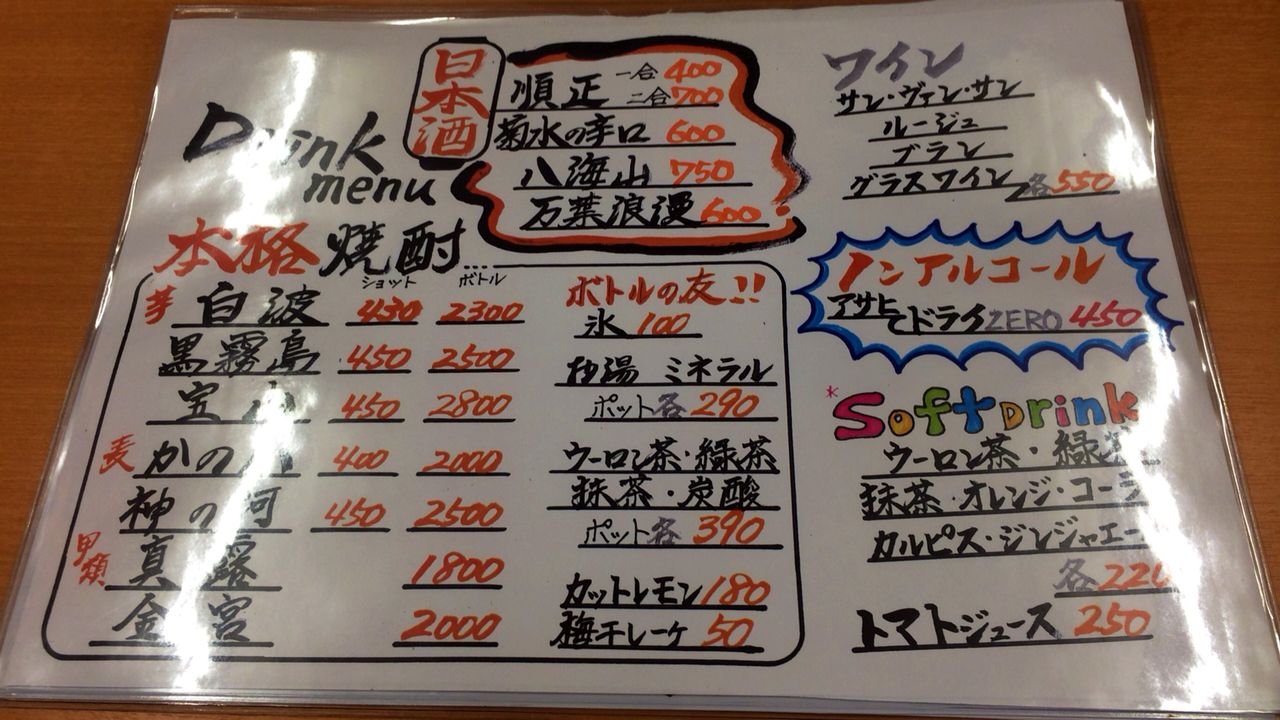 Drink menu
日本酒
順正 一合 400
二合 700
菊水の辛口 600
八海山 750
万葉浪漫 600
本格焼酎
ショット ボトル
芋 白波 430 2300
黒霧島 450 2500
宝山 450 2800
麦 かの 400 2000
神の河 450 2500
甲類 真露 1800
金宮 2000
ボトルの友!!
氷 100
お湯 ミネラル
ポット各 290
ウーロン茶・緑茶
抹茶・炭酸
ポット各 390
カットレモン 180
梅干し一ケ 50
ワイン
サン・ヴァン・サン
ルージュ
ブラン
グラスワイン 各550
ノンアルコール
アサヒ ドライZERO 450
*Softdrink
ウーロン茶・緑茶
抹茶・オレンジ・コーラ
カルピス・ジンジャエー
各220
トマトジュース 250